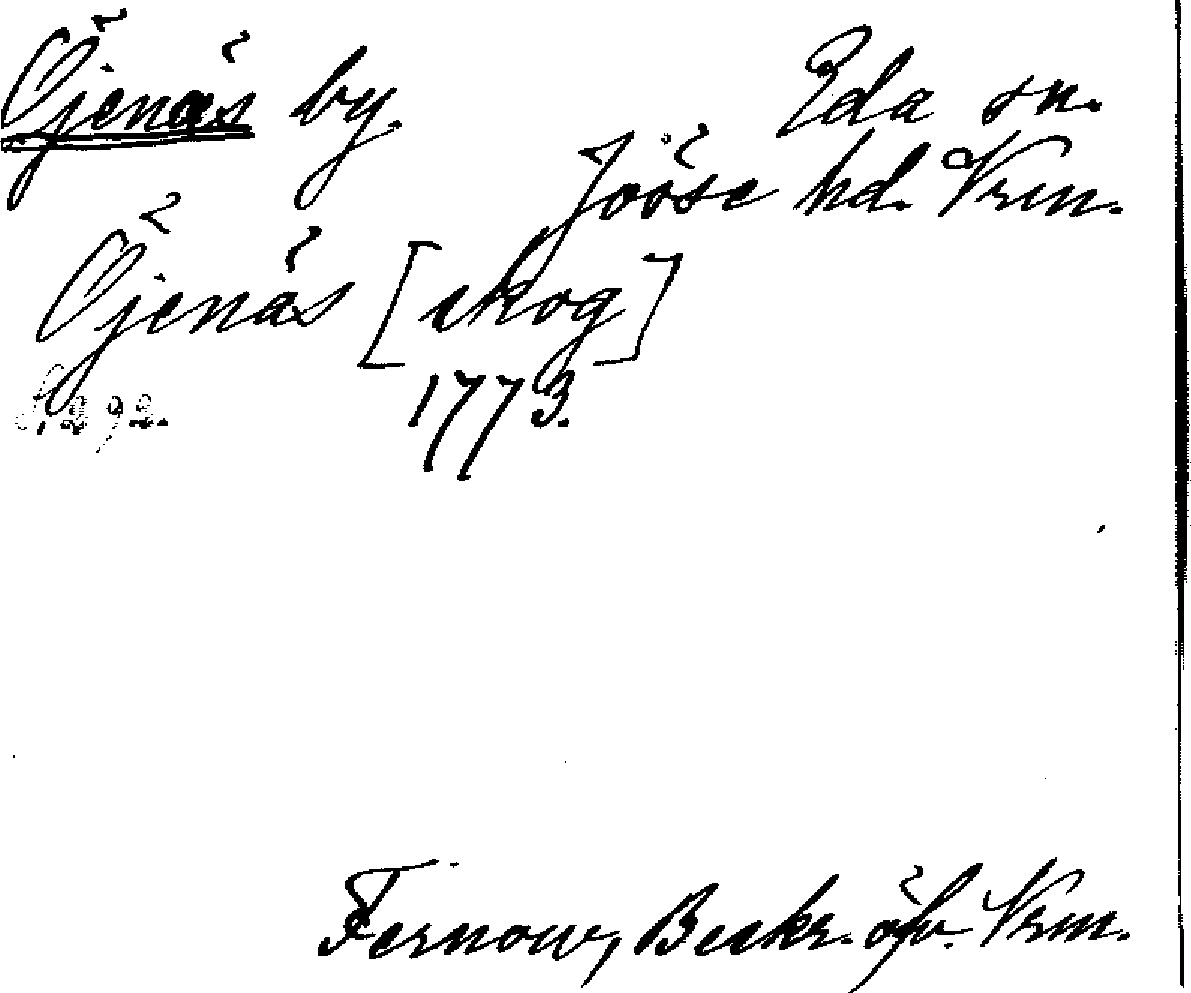 Öjenäs by. Eda sn.
Jösse hd. Vrm.
Öjenäs [skog]
S. 292. 1773.
Fernow, Beskr. öfv. Vrm.